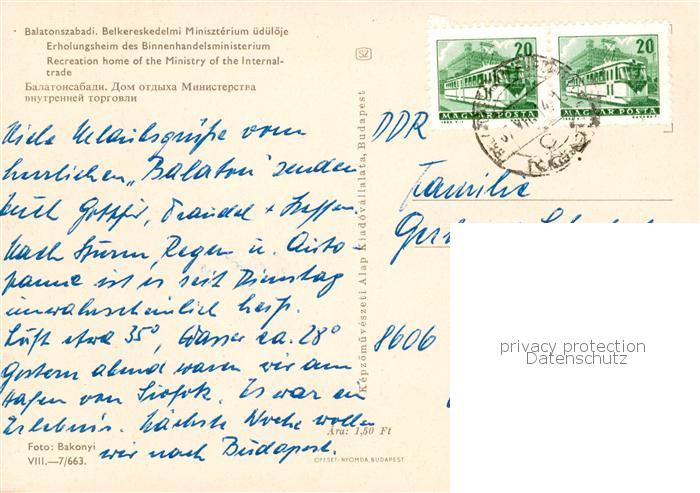 Balatonszabadi. Belkereskedelmi Minisztérium üdülője
Erholungsheim des Binnenhandelsministerium
Recreation home of the Ministry of the Internal-
trade
Балатонсабади. Дом отдыха Министерства
внутренней торговли
SZ
20
20
MAGYAR POSTA
MAGYAR POSTA
Viele Urlaubsgrüße vom
herrlichen „Balaton" senden
Euch Traudel + Steffen.
Nach Sturm, Regen u. Auto
panne ist es seit Dienstag
unwahrscheinlich heiß.
Luft etwa 35°, Wasser ca. 28°
Gestern abend waren wir am
Hafen von Siofok. Es war ein
Erlebnis. Nächste Woche wollen
wir nach Budapest.
Képzőművészeti Alap Kiadóvállalata, Budapest
DDR
Familie
8606
privacy protection
Datenschutz
Ára: 1,50 Ft
Foto: Bakonyi
VIII.—7/663.
OFFSET-NYOMDA, BUDAPEST